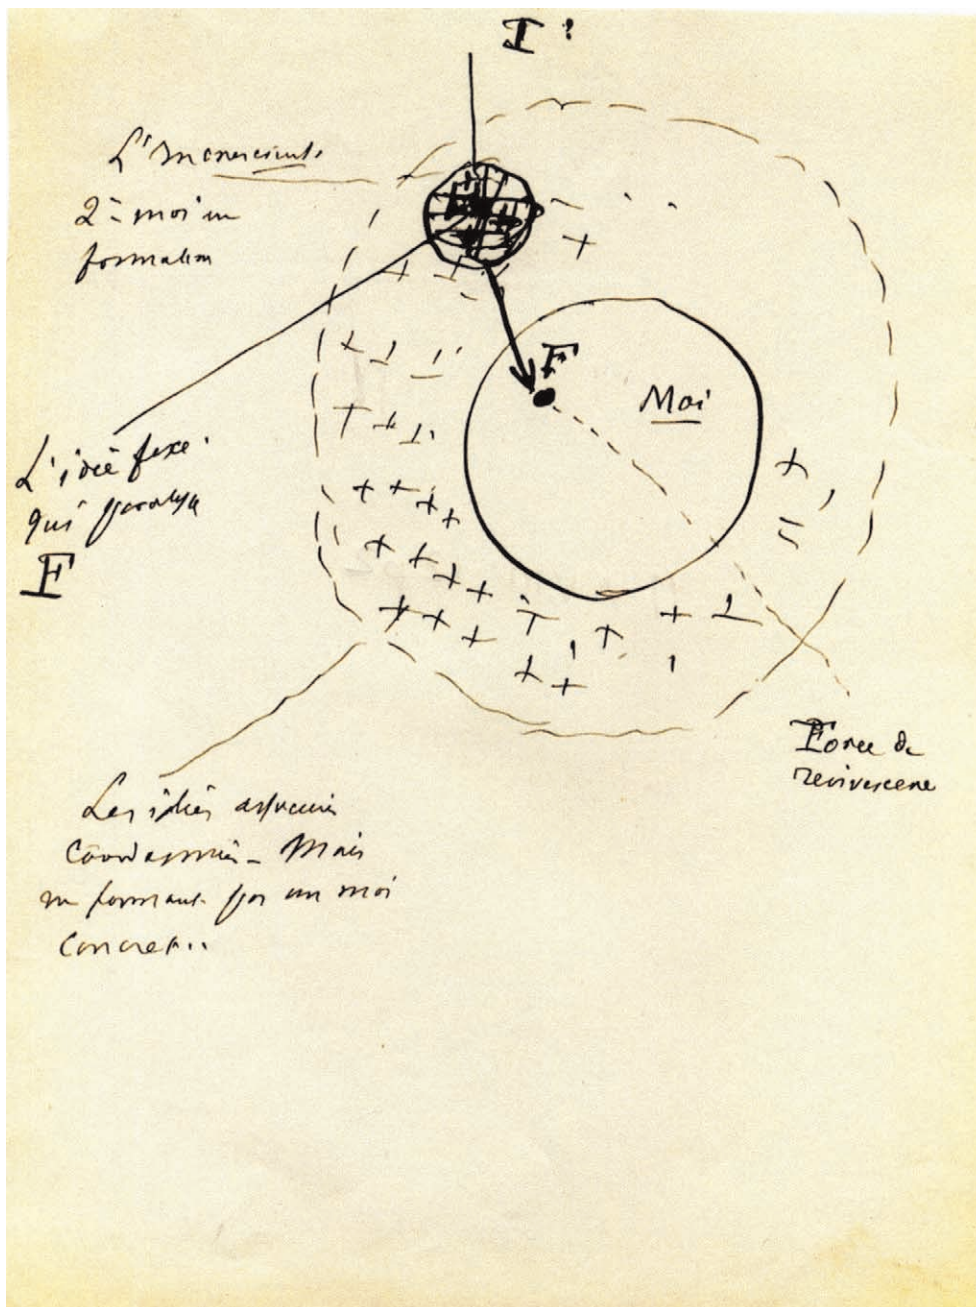 I'
L'Inconscient.
2e moi en
formation
F
Moi
L'idée fixe
qui paralyse
F
Force de
reviviscence
Les idées associées
Coordonnées - Mais
ne formant pas un moi
Concret..